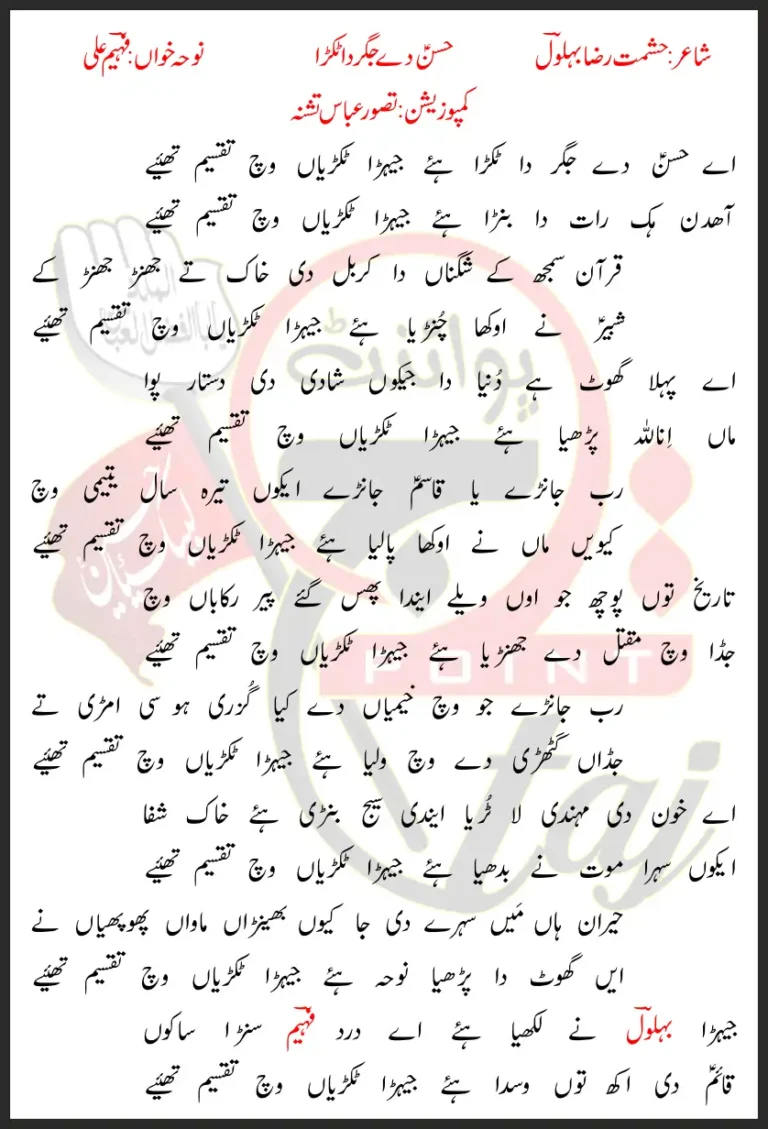 شاعر: حشمت رضا بہلولؔ حسنؑ دے جگر دا ٹکڑا نوحہ خواں: فہیمؔ علی
کمپوزیشن: تصور عباس تشنہ
اے حسنؑ دے جگر دا ٹکڑا ہئے جیہڑا ٹکڑیاں وچ تقسیم تھئیے
آھدن ہک رات دا بنڑا ہئے جیہڑا ٹکڑیاں وچ تقسیم تھئیے
قرآن سمجھ کے شگناں دا کربل دی خاک تے جھنڑ جھنڑ کے
شبیرؑ نے اوکھا چُنڑیا ہئے جیہڑا ٹکڑیاں وچ تقسیم تھئیے
اے پہلا گھوٹ ہے دُنیا دا جیکوں شادی دی دستار پوا
ماں اِناللہ پڑھیا ہئے جیہڑا ٹکڑیاں وچ تقسیم تھئیے
رب جانڑے یا قاسمؑ جانڑے ایکوں تیرہ سال یتیمی وچ
کیویں ماں نے اوکھا پالیا ہئے جیہڑا ٹکڑیاں وچ تقسیم تھئیے
تاریخ توں پوچھ جو اوں ویلے ایندا پھس گئے پیر رکاباں وچ
جڈا وچ مقتل دے جھنڑیا ہئے جیہڑا ٹکڑیاں وچ تقسیم تھئیے
رب جانڑے جو وچ خیمیاں دے کیا گُزری ہو سی امڑی تے
جڈاں گٹھڑی دے وچ ولیا ہئے جیہڑا ٹکڑیاں وچ تقسیم تھئیے
اے خون دی مہندی لا ٹُریا ایندی سیج بنڑی ہئے خاک شفا
ایکوں سہرا موت نے بدھیا ہئے جیہڑا ٹکڑیاں وچ تقسیم تھئیے
حیران ہاں مَیں سہرے دی جا کیوں بھینڑاں ماواں پھوپھیاں نے
ایں گھوٹ دا پڑھیا نوحہ ہئے جیہڑا ٹکڑیاں وچ تقسیم تھئیے
جیہڑا بہلولؔ نے لکھیا ہئے اے درد فہیمؔ سنڑا ساکوں
قائمؑ دی اکھ توں وسدا ہئے جیہڑا ٹکڑیاں وچ تقسیم تھئیے
پوائنٹ
POINT
taj